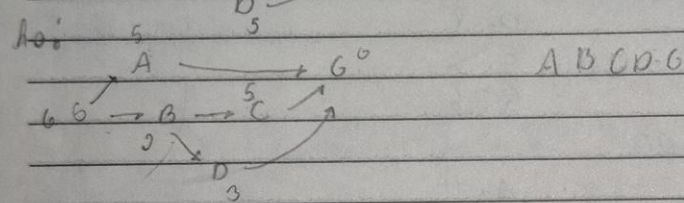 D
5 5
A → G 0 A B C D G
6 6 → B → C 5
2 D
3